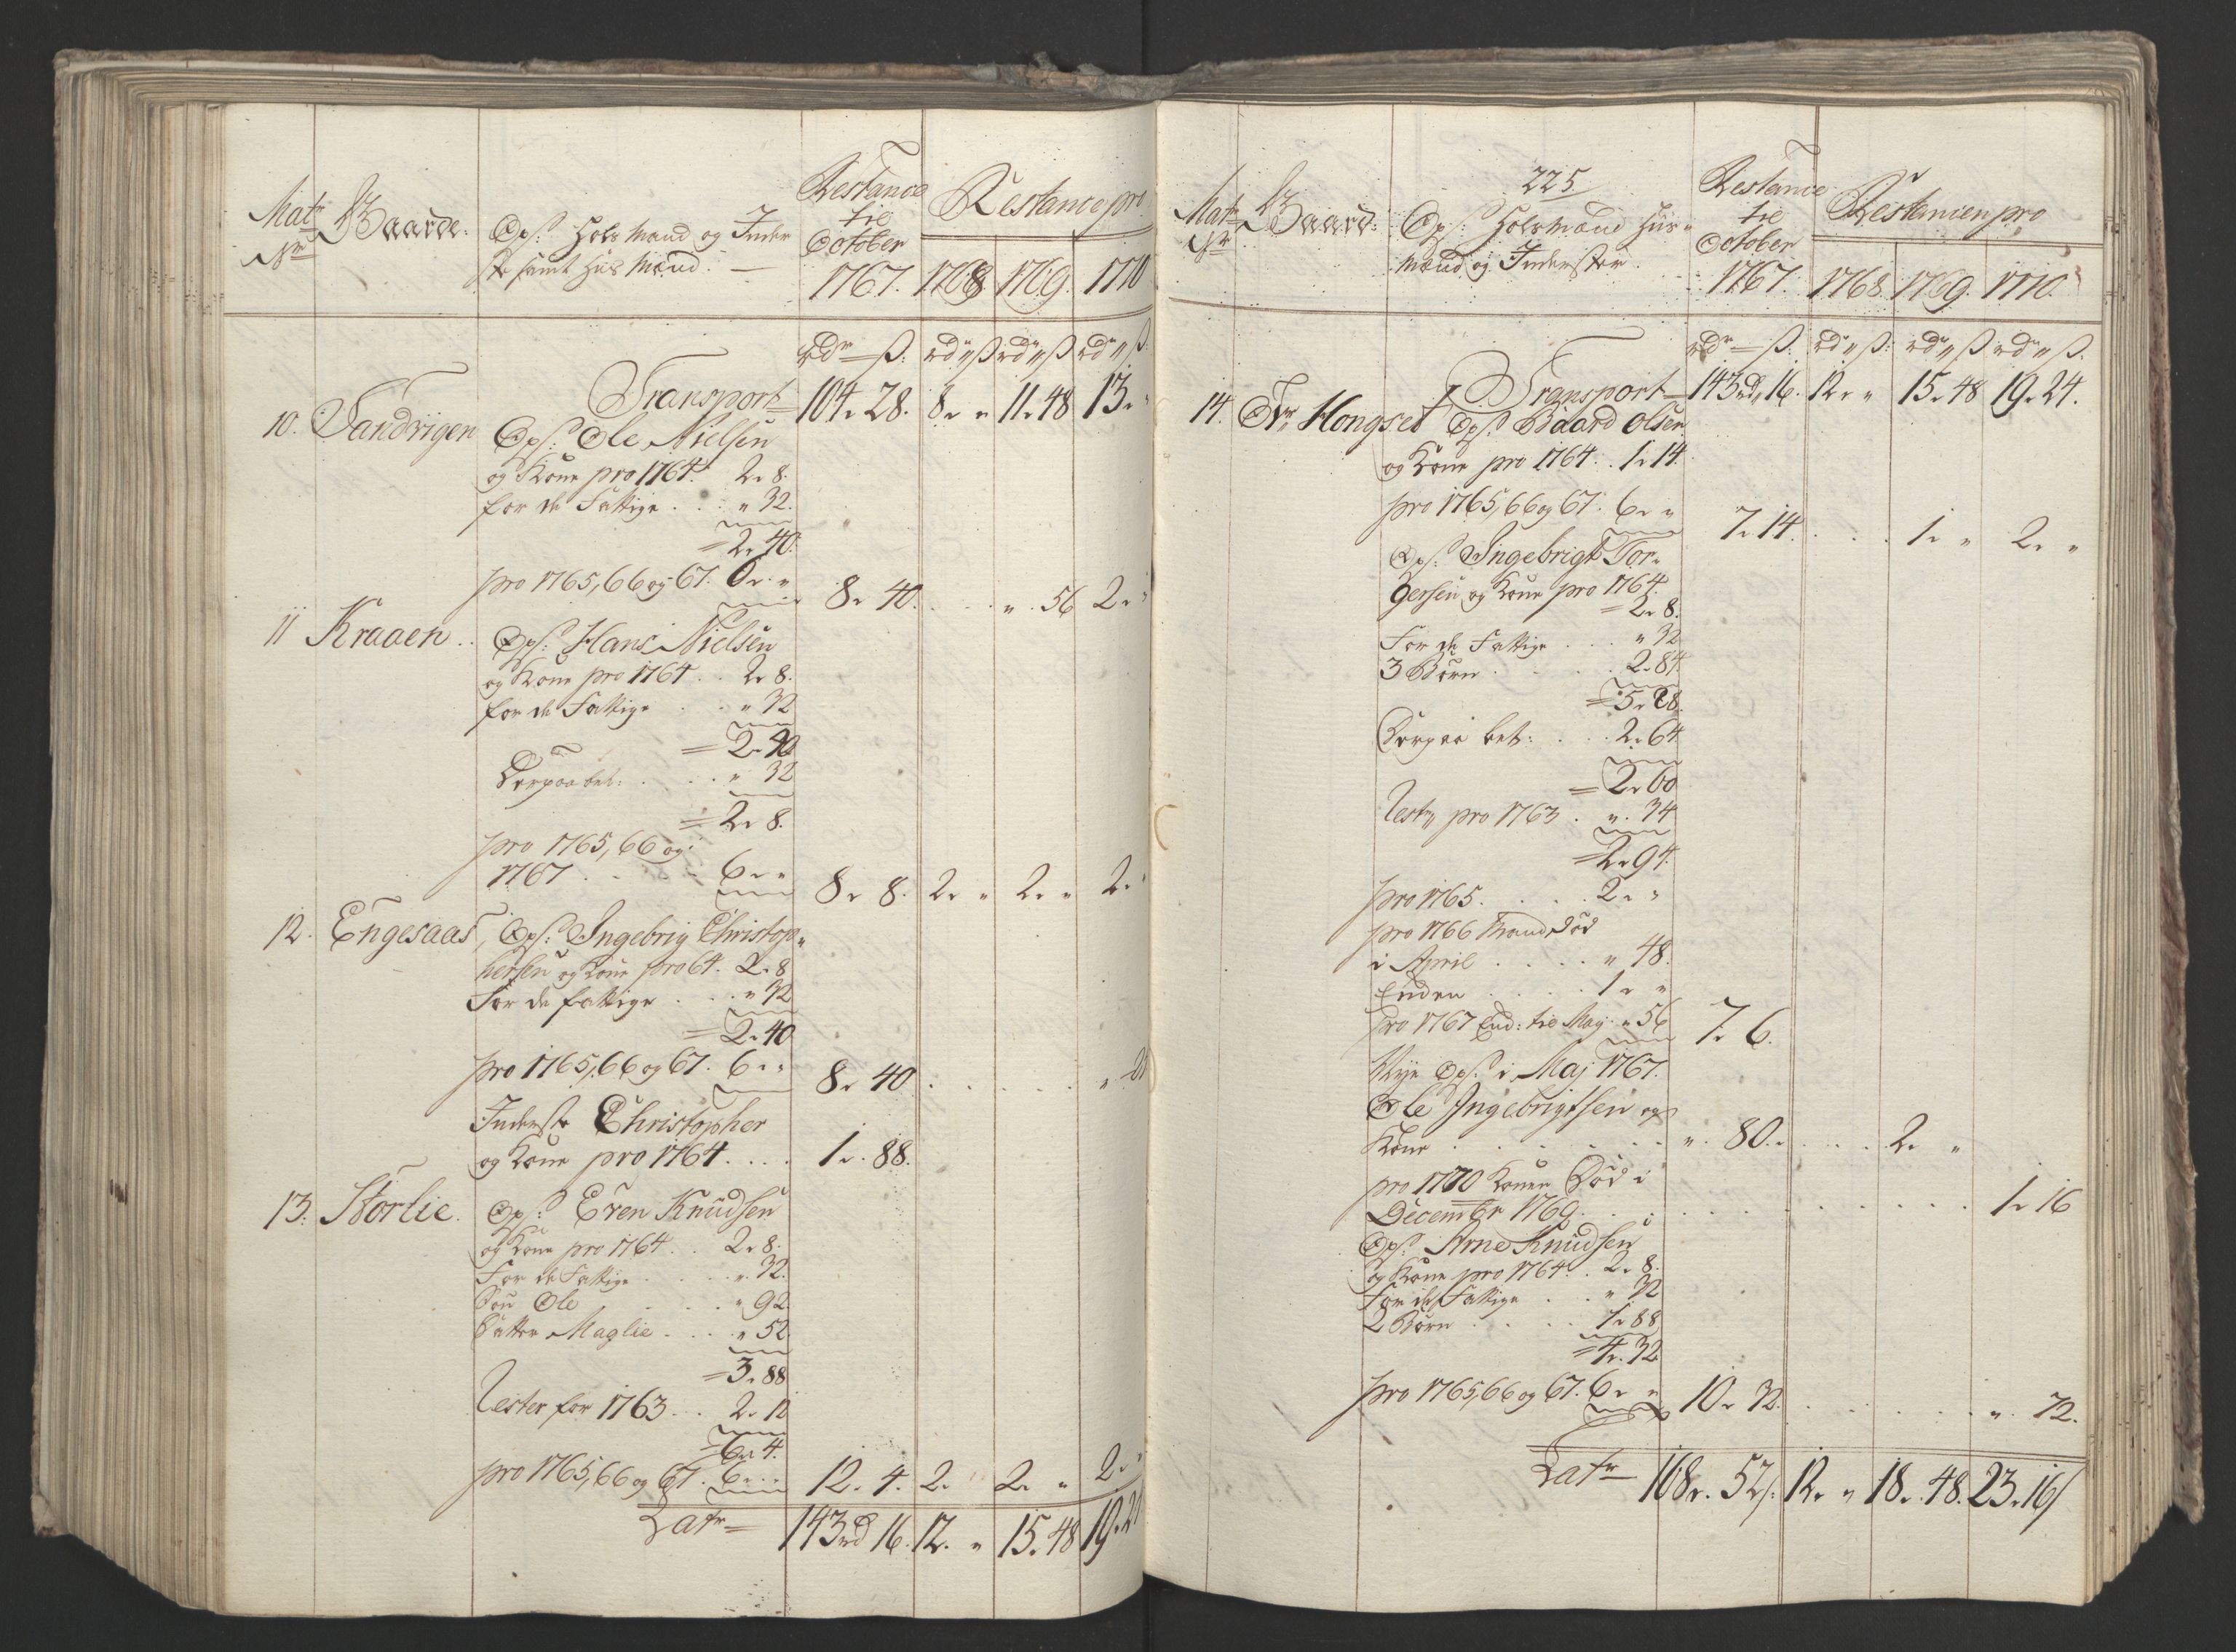 Matr Nr
Gaarde.
Ops: Folk Mand og Inder
ste samt Huus Mænd.
Restance
til
October
1767.
Restance pro
1768. 1769. 1770
rdr — ß: rd „ ß rd „ ß rd „ ß
Transport 104. 28. 8. „ 11. 48 13.
10. Sandvigen Ops: Ole Nielsen
og Kone pro 1764. 2. 8.
for de Fattige . . . „ 32.
2. 40.
pro 1765, 66 og 67. 6. „ 8. 40. . . . „ 56 2.
11 Kraaen . . Ops: Hans Nielsen
og Kone pro 1764 . . 2. 8.
for de Fattige . . . „ 32
2. 40
Derpaa bet: . . . „ 32
2. 8.
pro 1765, 66 og
1767 . . . 6. „ 8. 8. 2. „ 2. „ 2.
12. Engesaas, Ops: Ingebrig Christop„
hersen og Kone pro 64. 2. 8
For de fattige . . . „ 32
2. 40
pro 1765, 66 og 67. 6. „ 8. 40
Inderste Christopher
og Kone pro 1764 . . . . 1. 88.
13. Storlie. Ops: Even Knudsen
og Kone pro 1764 . . 2. 8.
For de Fattige . . . „ 32.
Søn Ole . . . „ 92
Datter Maglie . . . „ 52
3. 88
Rester for 1763 . . 2. 12
6. 4.
pro 1765, 66 og 67. 6. „ 12. 4. 2. 2. „ 2.
Latr 143rd 16. 12. „ 15. 48
225
Matr Nr
Gaard:
Ops: Folk Mænd Huus„
mænd og Inderster.
Restance
til
October
1767.
Restancen pro
1768. 1769. 1770.
rdr — ß: rd „ ß: rd „ ß rd „ ß.
Transport 143rd. 16. 12. „ 15. 48 19. 24.
14. Nr Hongset Ops: Baard Olsen
og Kone pro 1764 . . 1. 14.
pro 1765, 66 og 67. 6. „ 7. 14. . . . 1. „ 2. „
Ops: Ingebrigt Tor„
gersen og Kone pro 1764.
2. 8.
For de Fattige . . . „ 32
3 Børn . . . . 2. 84.
5. 28.
Derpaa bet: . . . 2. 64
2. 60
Rest„ pro 1763 . „ 34
2. 94.
pro 1765 . . . . 2. „
pro 1766 Mand Død
i April . . . . „ 48.
Enken . . . . 1. „
pro 1767 Enk: til Maj „ 56 7. 6.
Nye Ops: i Maj 1767.
Ole Ingebrigtsen og
Kone . . . . . . „ 80. . . . 2. „
pro 1770 Konen Død i
Decembr 1769 . . . . . . . . 1. 16
Ops: Arne Knudsen
og Kone pro 1764 . . 2. 8.
For de Fattige . . „ 32
2 Børn . . . . 1. 88
4. 32
pro 1765, 66 og 67. 6. „ 10. 32. . . . . . „ 72.
Latr 168r. 52ß. 12. „ 18. 48. 23. 16/